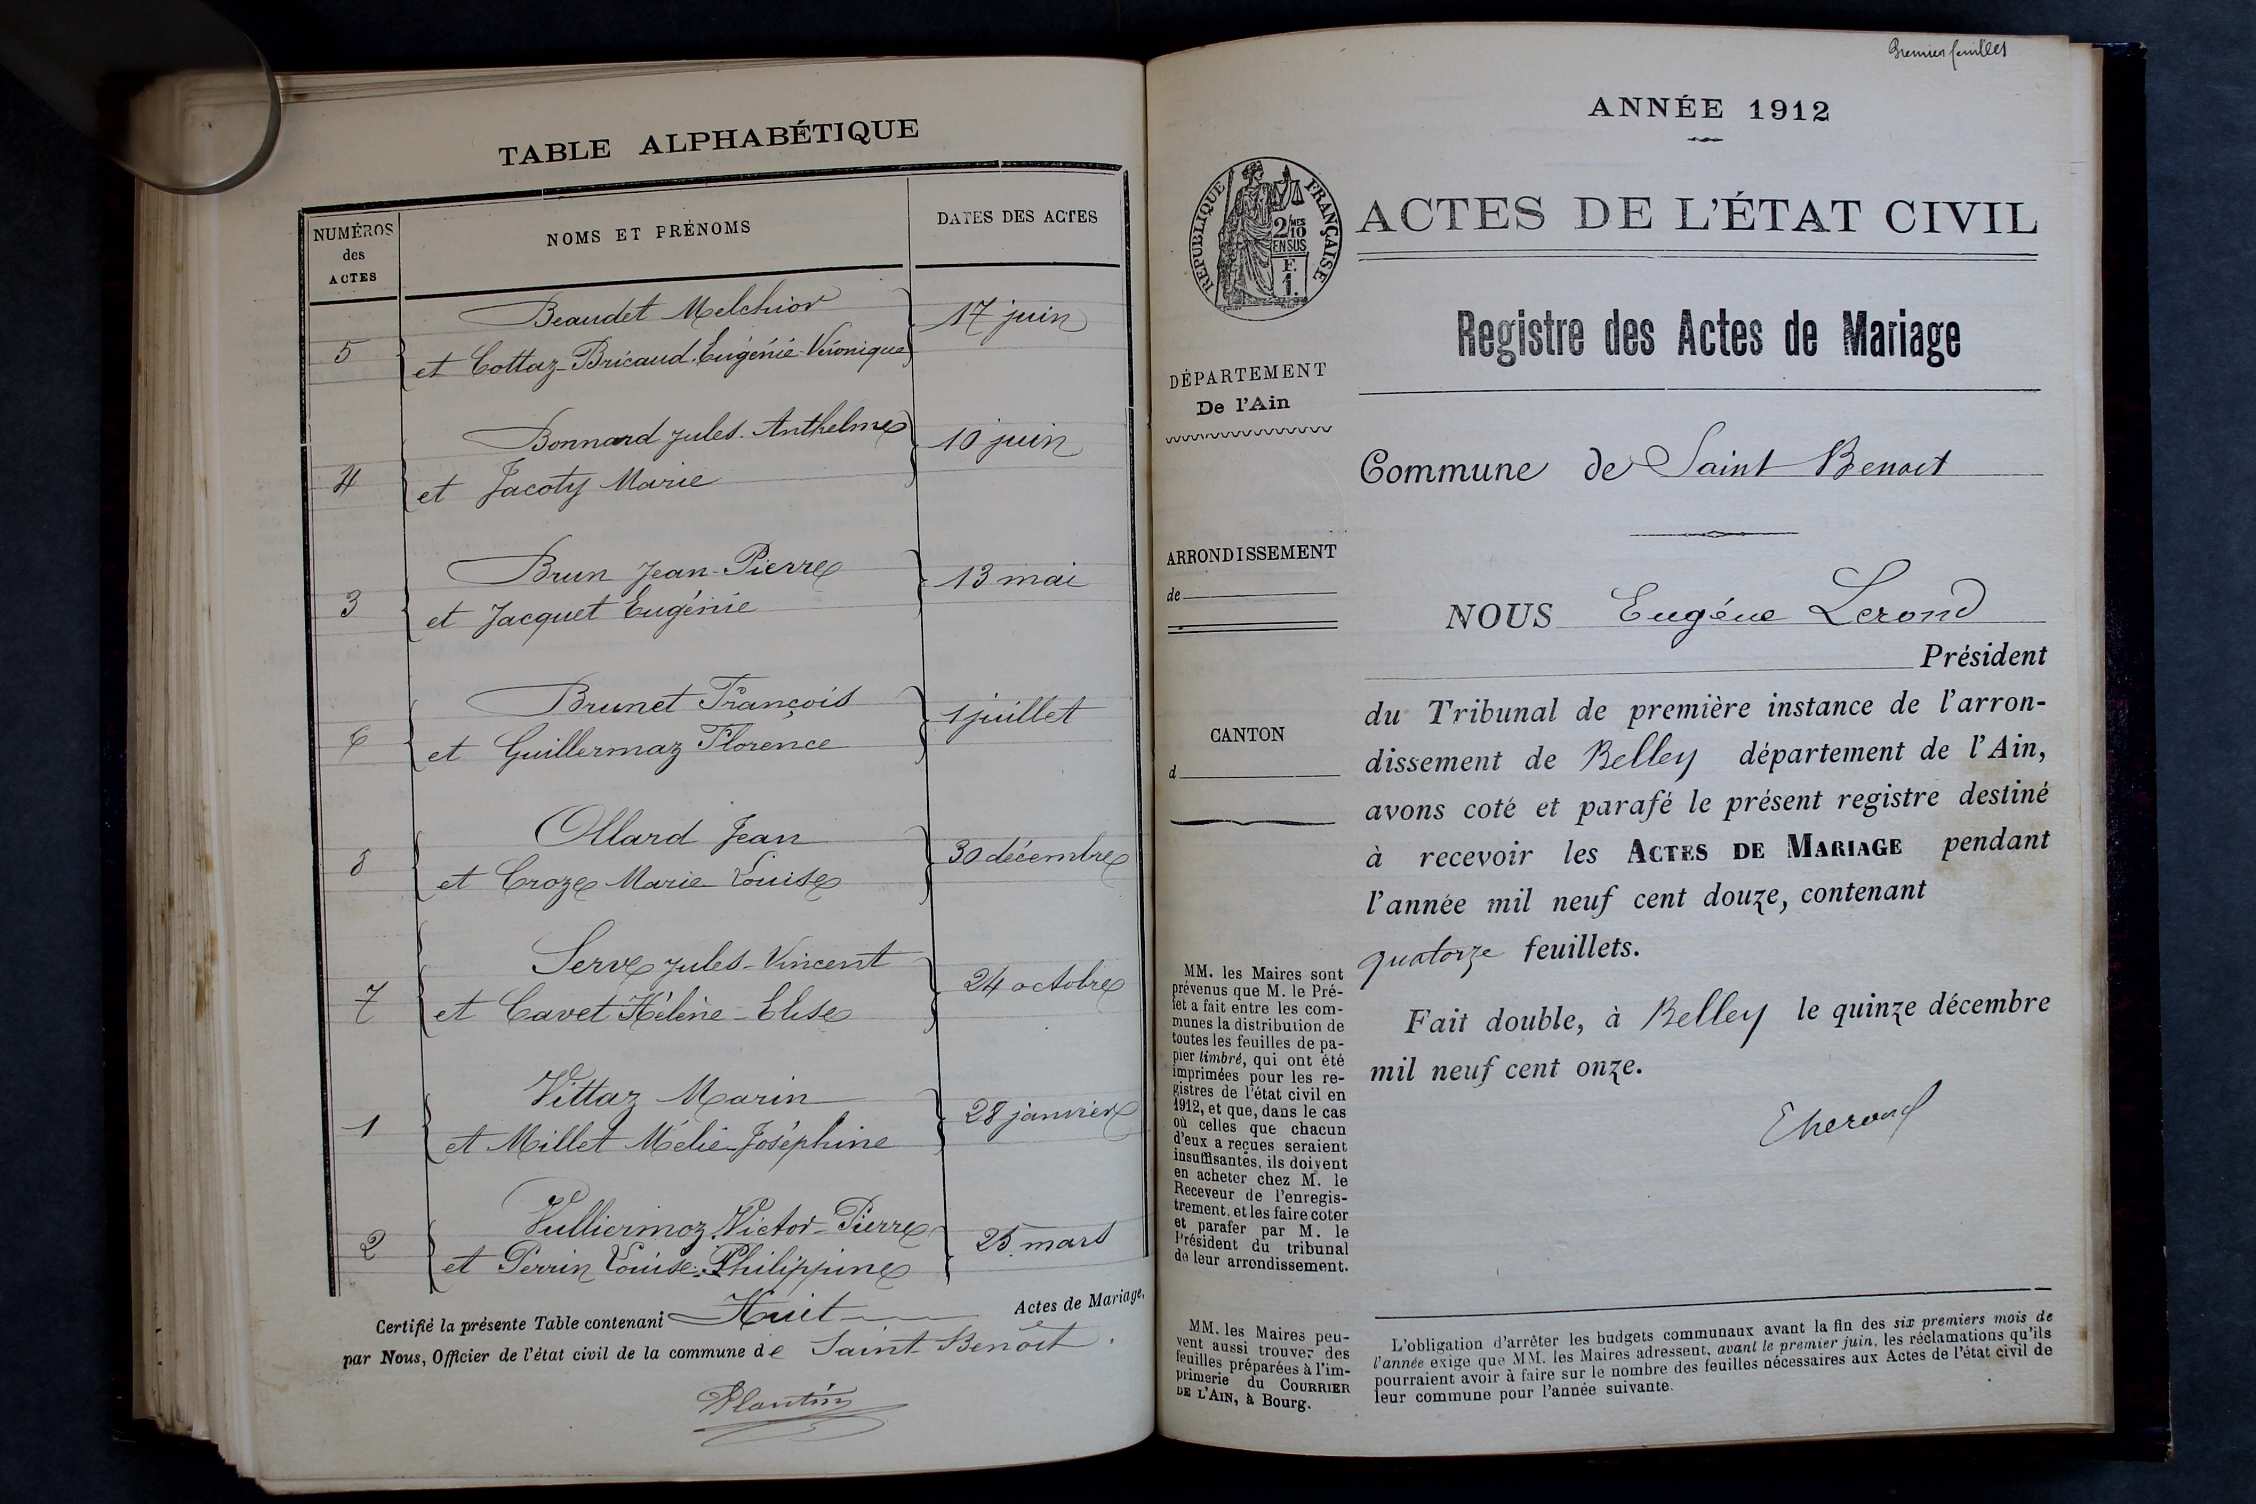 TABLE ALPHABÉTIQUE
NUMÉROS
des
ACTES
NOMS ET PRÉNOMS
DATES DES ACTES
Beaudet Melchior
5
et Cottaz-Bricaud Eugénie-Véronique
17 juin
Bonnard Jules-Anthelme
4
et Jacoty Marie
10 juin
Brun Jean-Pierre
3
et Jacquet Eugénie
13 mai
Brunet François
6
et Guillermaz Florence
1 juillet
Ollard Jean
8
et Croze Marie Louise
30 décembre
Serve Jules-Vincent
7
et Cavet Hélène-Elise
24 octobre
Vittaz Marin
1
et Millet Mélie-Joséphine
28 janvier
Vulliermoz Victor-Pierre
2
et Perrin Louise-Philippine
25 mars
Certifié la présente Table contenant Huit Actes de Mariage,
par Nous, Officier de l'état civil de la commune de Saint-Benoît.
Plantin
Premier feuillet
ANNÉE 1912
RÉPUBLIQUE FRANÇAISE
2/10MES
EN SUS
F.
1.
ACTES DE L'ÉTAT CIVIL
Registre des Actes de Mariage
DÉPARTEMENT
De l'Ain
Commune de Saint Benoit
ARRONDISSEMENT
de
NOUS Eugène Lerond
Président
CANTON
d
du Tribunal de première instance de l'arron-
dissement de Belley département de l'Ain,
avons coté et parafé le présent registre destiné
à recevoir les ACTES DE MARIAGE pendant
l'année mil neuf cent douze, contenant
quatorze feuillets.
Fait double, à Belley le quinze décembre
mil neuf cent onze.
MM. les Maires sont
prévenus que M. le Pré-
fet a fait entre les com-
munes la distribution de
toutes les feuilles de pa-
pier timbré, qui ont été
imprimées pour les re-
gistres de l'état civil en
1912, et que, dans le cas
où celles que chacun
d'eux a reçues seraient
insuffisantes, ils doivent
en acheter chez M. le
Receveur de l'enregis-
trement, et les faire coter
et parafer par M. le
Président du tribunal
de leur arrondissement.
MM. les Maires peu-
vent aussi trouver des
feuilles préparées à l'im-
primerie du COURRIER
DE L'AIN, à Bourg.
L'obligation d'arrêter les budgets communaux avant la fin des six premiers mois de
l'année exige que MM. les Maires adressent, avant le premier juin, les réclamations qu'ils
pourraient avoir à faire sur le nombre des feuilles nécessaires aux Actes de l'état civil de
leur commune pour l'année suivante.